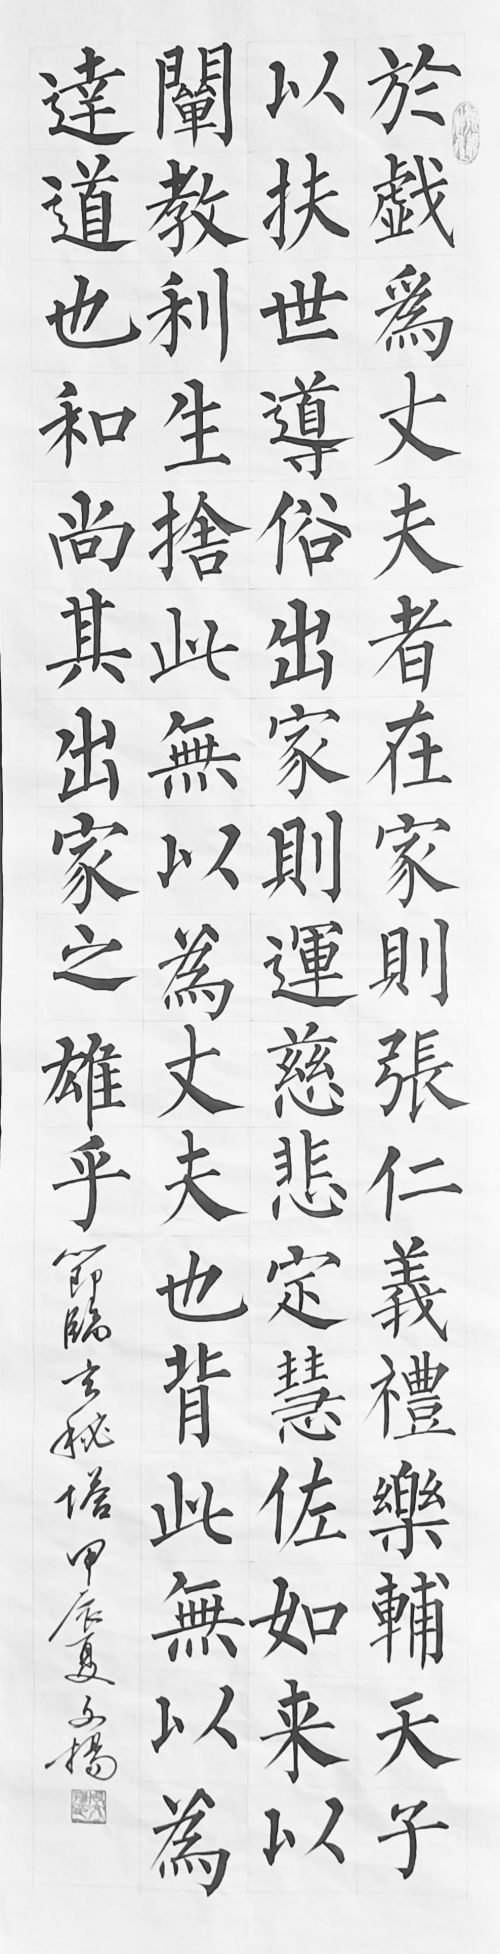 於戯爲丈夫者在家則張仁義禮樂輔天子
以扶世導俗出家則運慈悲定慧佐如来以
闡教利生捨此無以為丈夫也背此無以為
達道也和尚其出家之雄乎 節臨玄秘塔 甲辰夏 文揚